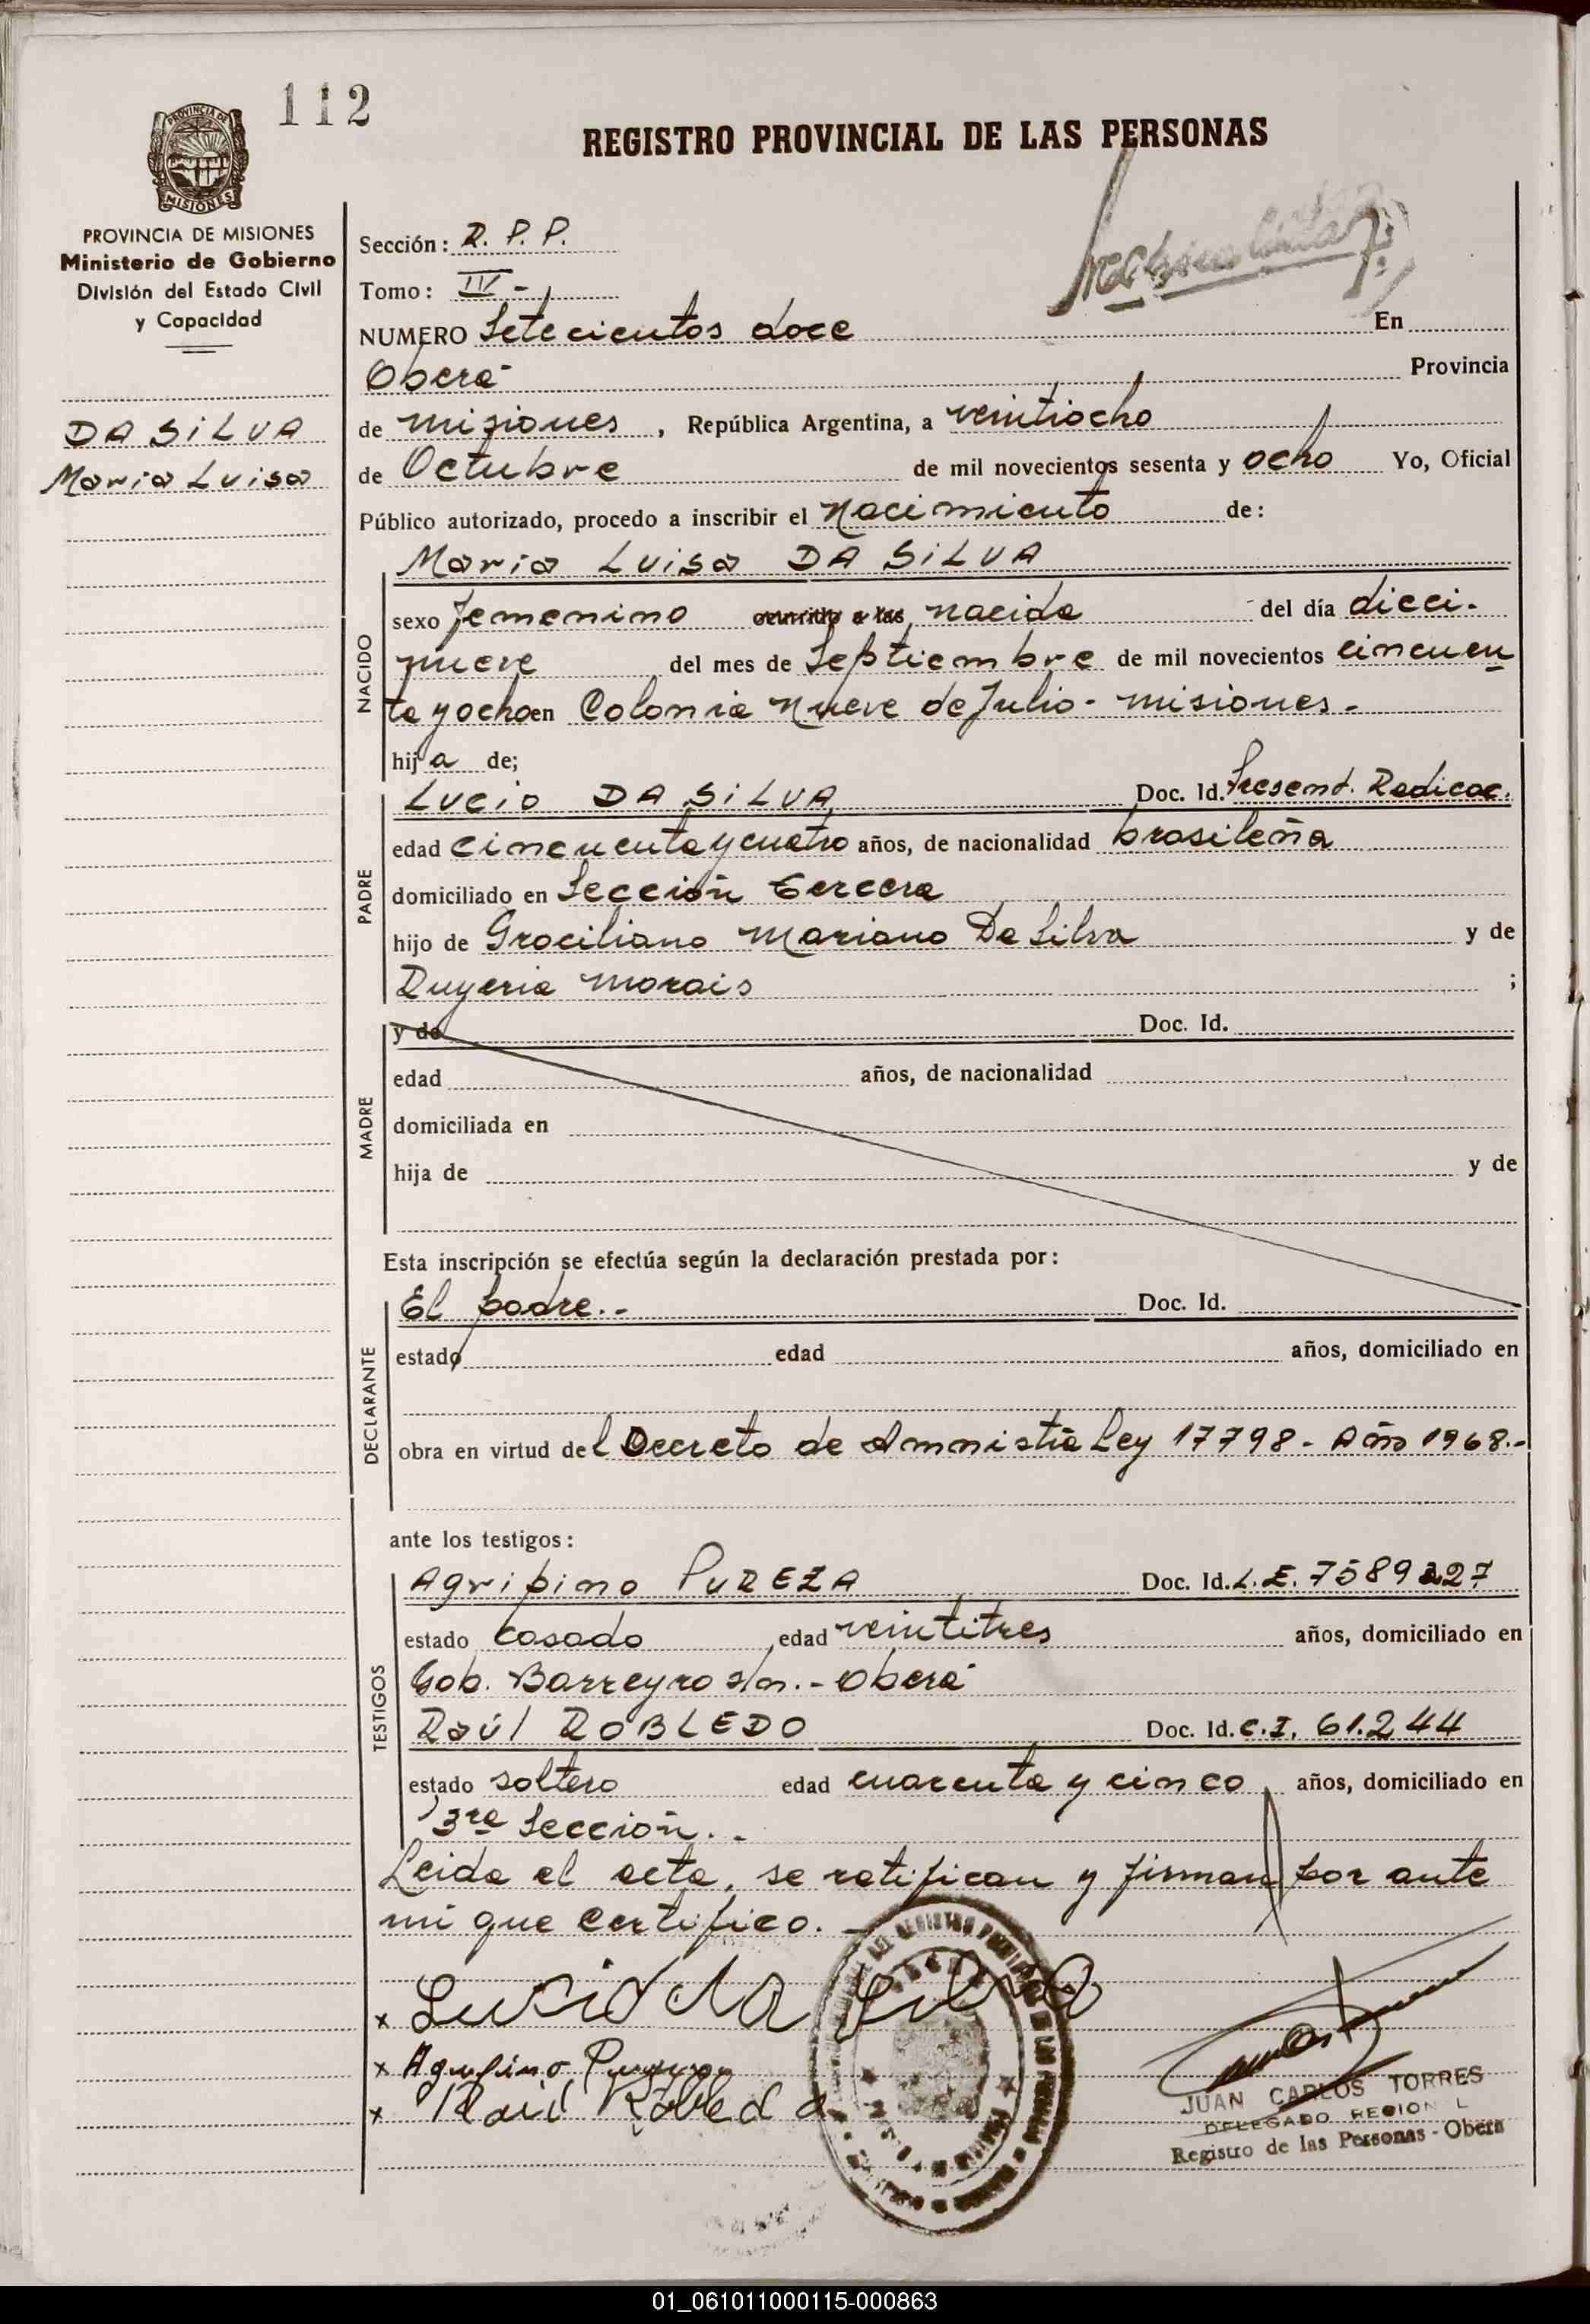 112
REGISTRO PROVINCIAL DE LAS PERSONAS
PROVINCIA DE
MISIONES
PROVINCIA DE MISIONES
Ministerio de Gobierno
División del Estado Civil
y Capacidad
DA SILVA
Maria Luisa
Sección: R. P. P.
Tomo: IV -
NUMERO Setecientos doce En
Oberá Provincia
de misiones, República Argentina, a veintiocho
de Octubre de mil novecientos sesenta y ocho Yo, Oficial
Público autorizado, procedo a inscribir el Nacimiento de:
NACIDO
Maria Luisa DA SILVA
sexo femenino ocurrido a las nacida del día dieci-
nueve del mes de Septiembre de mil novecientos cincuen
ta y ocho en Colonia Nueve de Julio - misiones.-
hija de;
PADRE
Lucio DA SILVA Doc. Id. Present. Radicac.
edad cincuenta y cuatro años, de nacionalidad brasileña
domiciliado en Sección tercera
hijo de Graciliano Mariano Da Silva y de
morais ;
MADRE
y de Doc. Id.
edad años, de nacionalidad
domiciliada en
hija de y de
Esta inscripción se efectúa según la declaración prestada por:
DECLARANTE
El padre.- Doc. Id.
estado edad años, domiciliado en
obra en virtud del Decreto de Amnistía Ley 17798 - Año 1968.-
ante los testigos:
TESTIGOS
Agripino PUREZA Doc. Id. L.E. 7589327
estado casado edad veintitres años, domiciliado en
Gob. Barreyro s/n.- Oberá
Raúl ROBLEDO Doc. Id. C.I. 61.244
estado soltero edad cuarenta y cinco años, domiciliado en
3ra Sección.-
Leida el acta, se ratifican y firman por ante
mi que certifico.
x Lusio da Silva
x Agripino Pureza
x Raul Robledo
JUAN CARLOS TORRES
DELEGADO REGION L
Registro de las Personas - Oberá
01_061011000115-000863